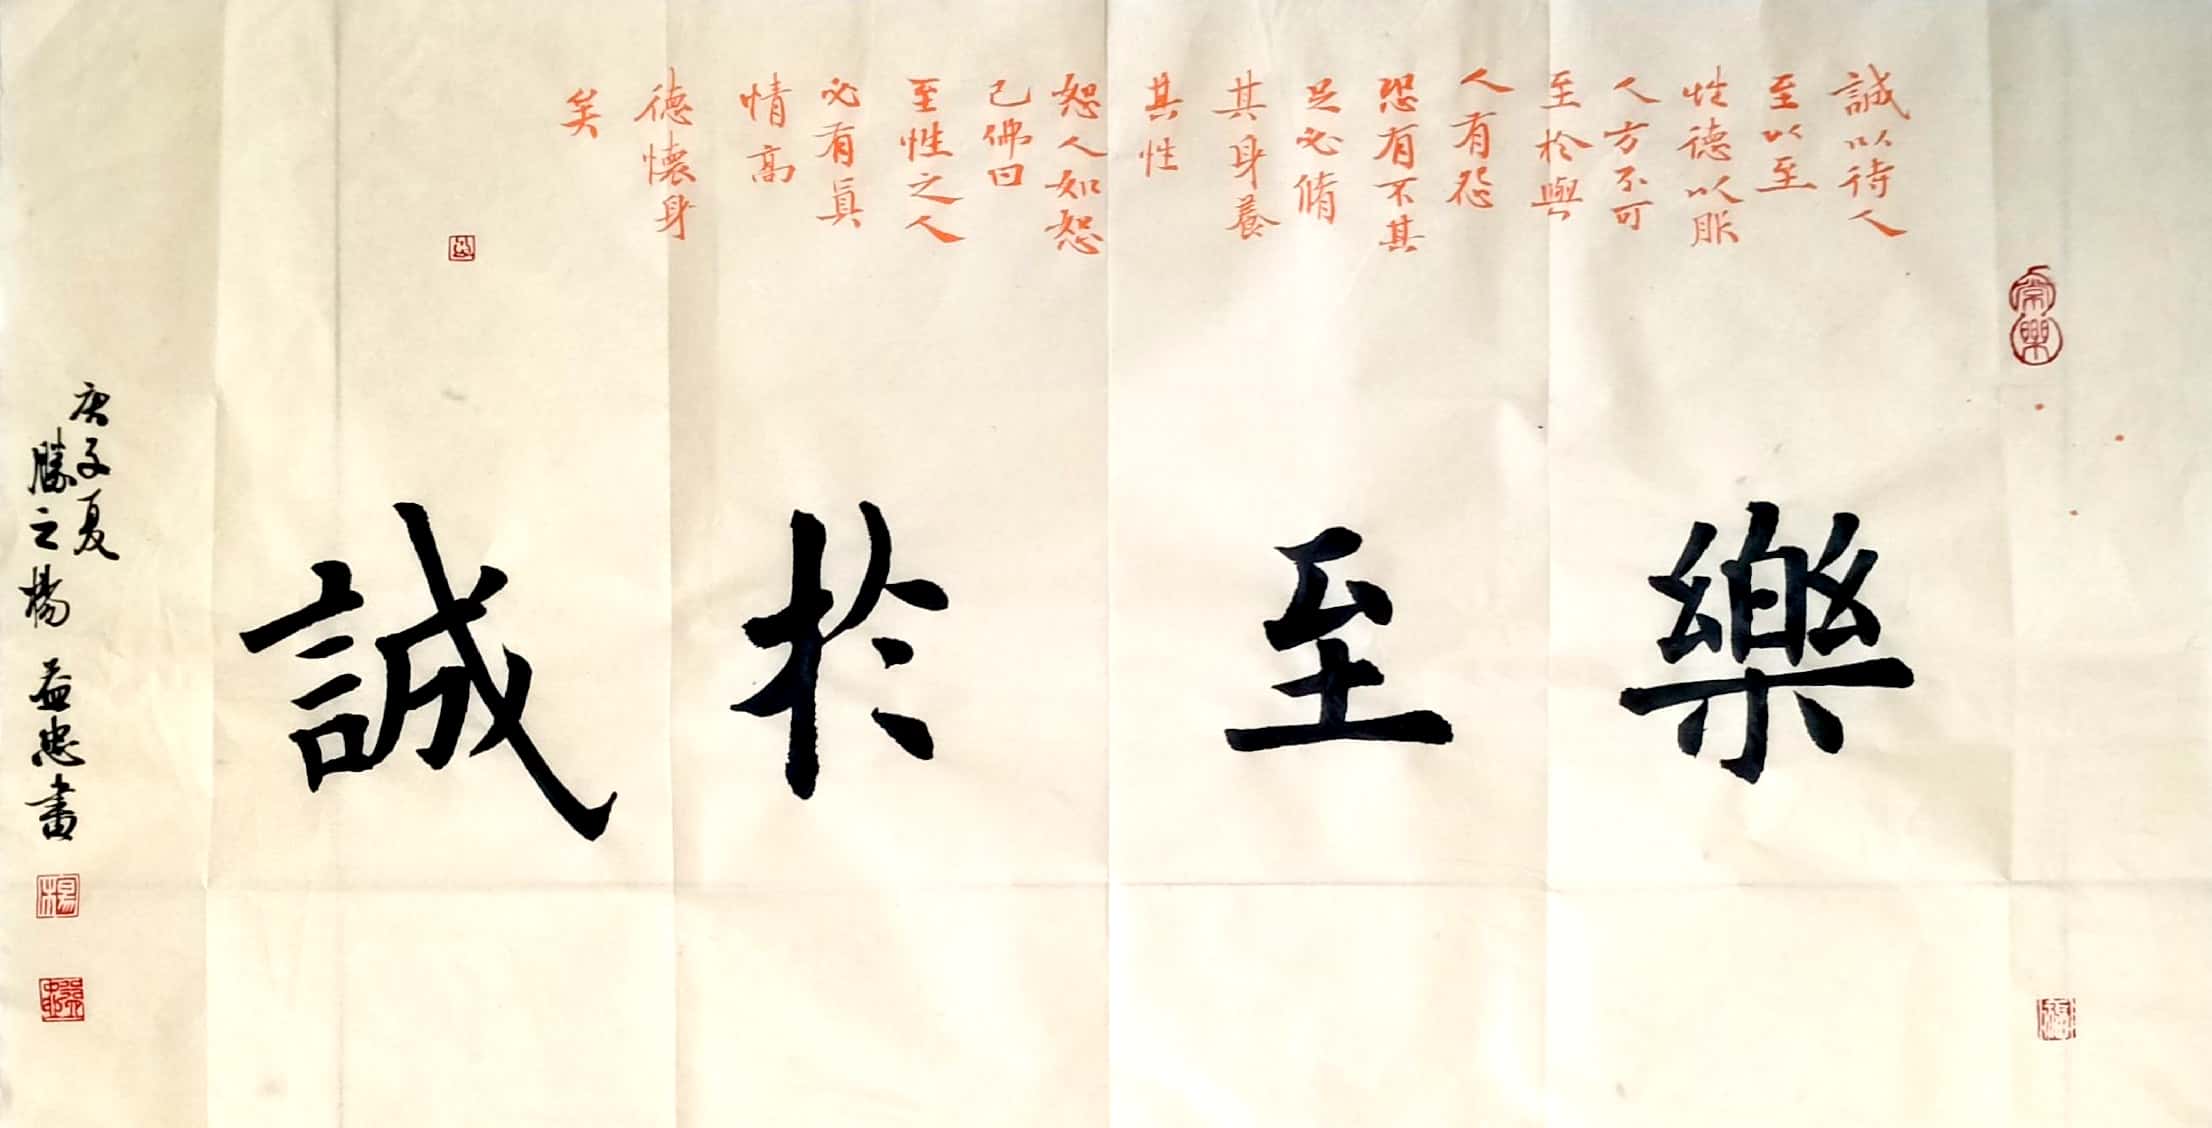 誠以待人
至以至
性德以服
人方不可
至於與
人有怨
恐有不其
足必脩
其身養
其性
恕人如恕
己佛曰
至性之人
必有眞
情高
德懷身
矣
常樂
樂至於誠
庚子夏
勝之楊益忠書
楊